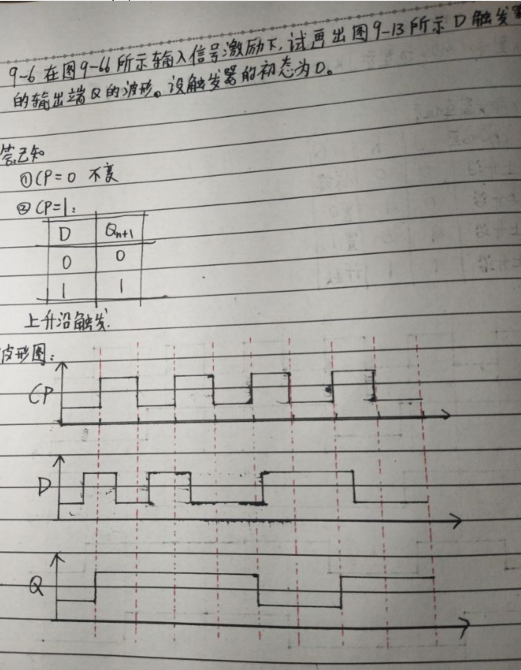 9-6 在图9-66所示输入信号激励下,试画出图9-13所示D触发器
的输出端Q的波形。设触发器的初态为0。
答:已知
①CP=0 不变
②CP=1:
D Qn+1
0 0
1 1
上升沿触发.
波形图:
CP
D
Q